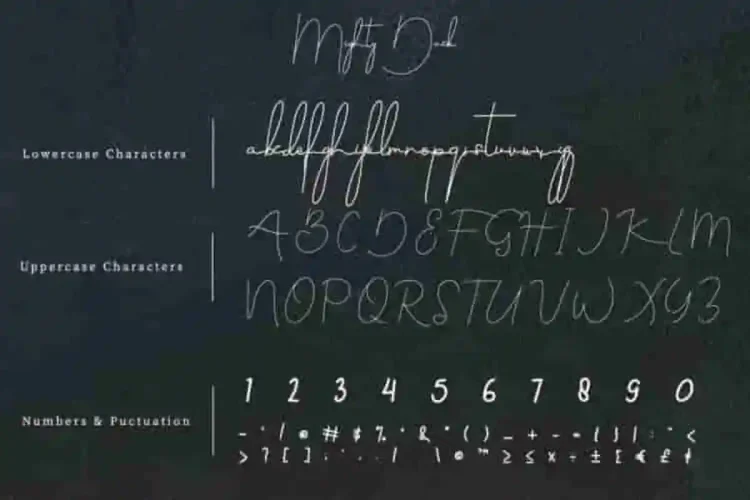 Mighty Duck
Lowercase Characters
abcdefghijklmnopqrstuvwxyz
Uppercase Characters
ABCDEFGHIJKLM
NOPQRSTUVWXYZ
Numbers & Puctuation
1 2 3 4 5 6 7 8 9 0
/ @ # $ % & * ( ) _ + - = { } | : " <
> ? [ ] ; ' . / \ © ™ ≥ ≤ × ÷ ± £